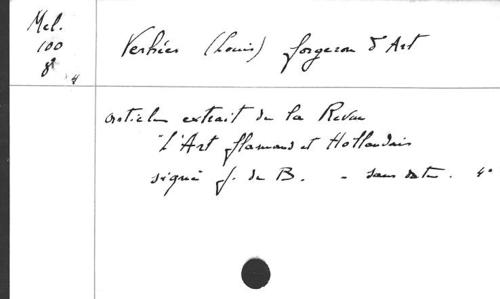 Mel.
100
4
(Louis) forgeron d'Art
article extrait de la Revue
"L'Art flamand et Hollandais
signé J. de B. - sans date. 4°